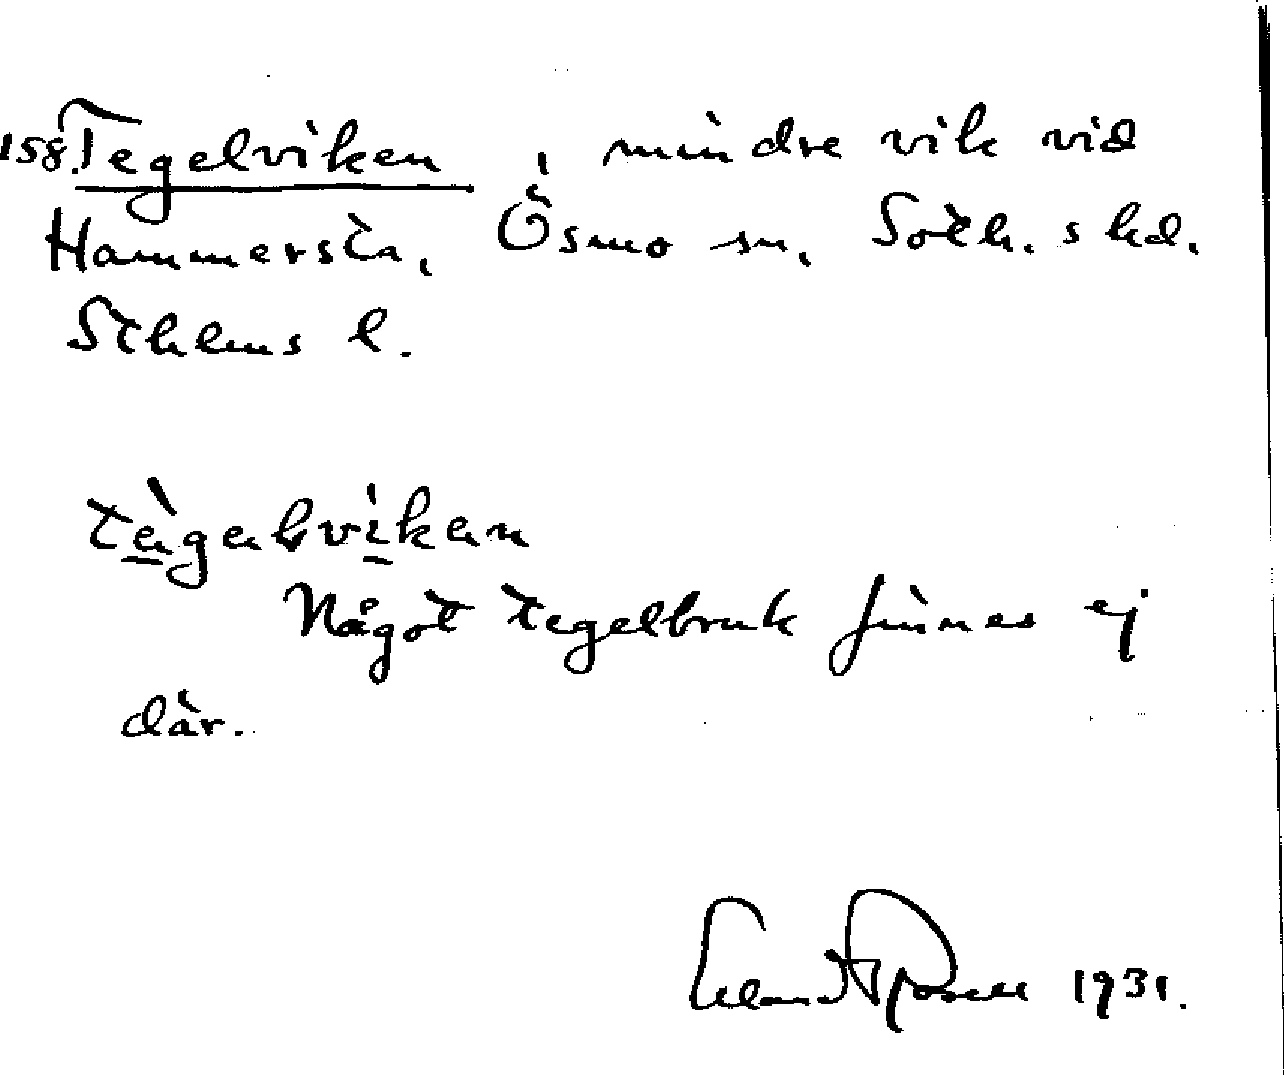 158. Tegelviken, mindre vik vid
Hammersta, Ösmo sn, Soth. s hd.
Sthlms l.
tègəlvikən
Något tegelbruk finnes ej
där.
1931.